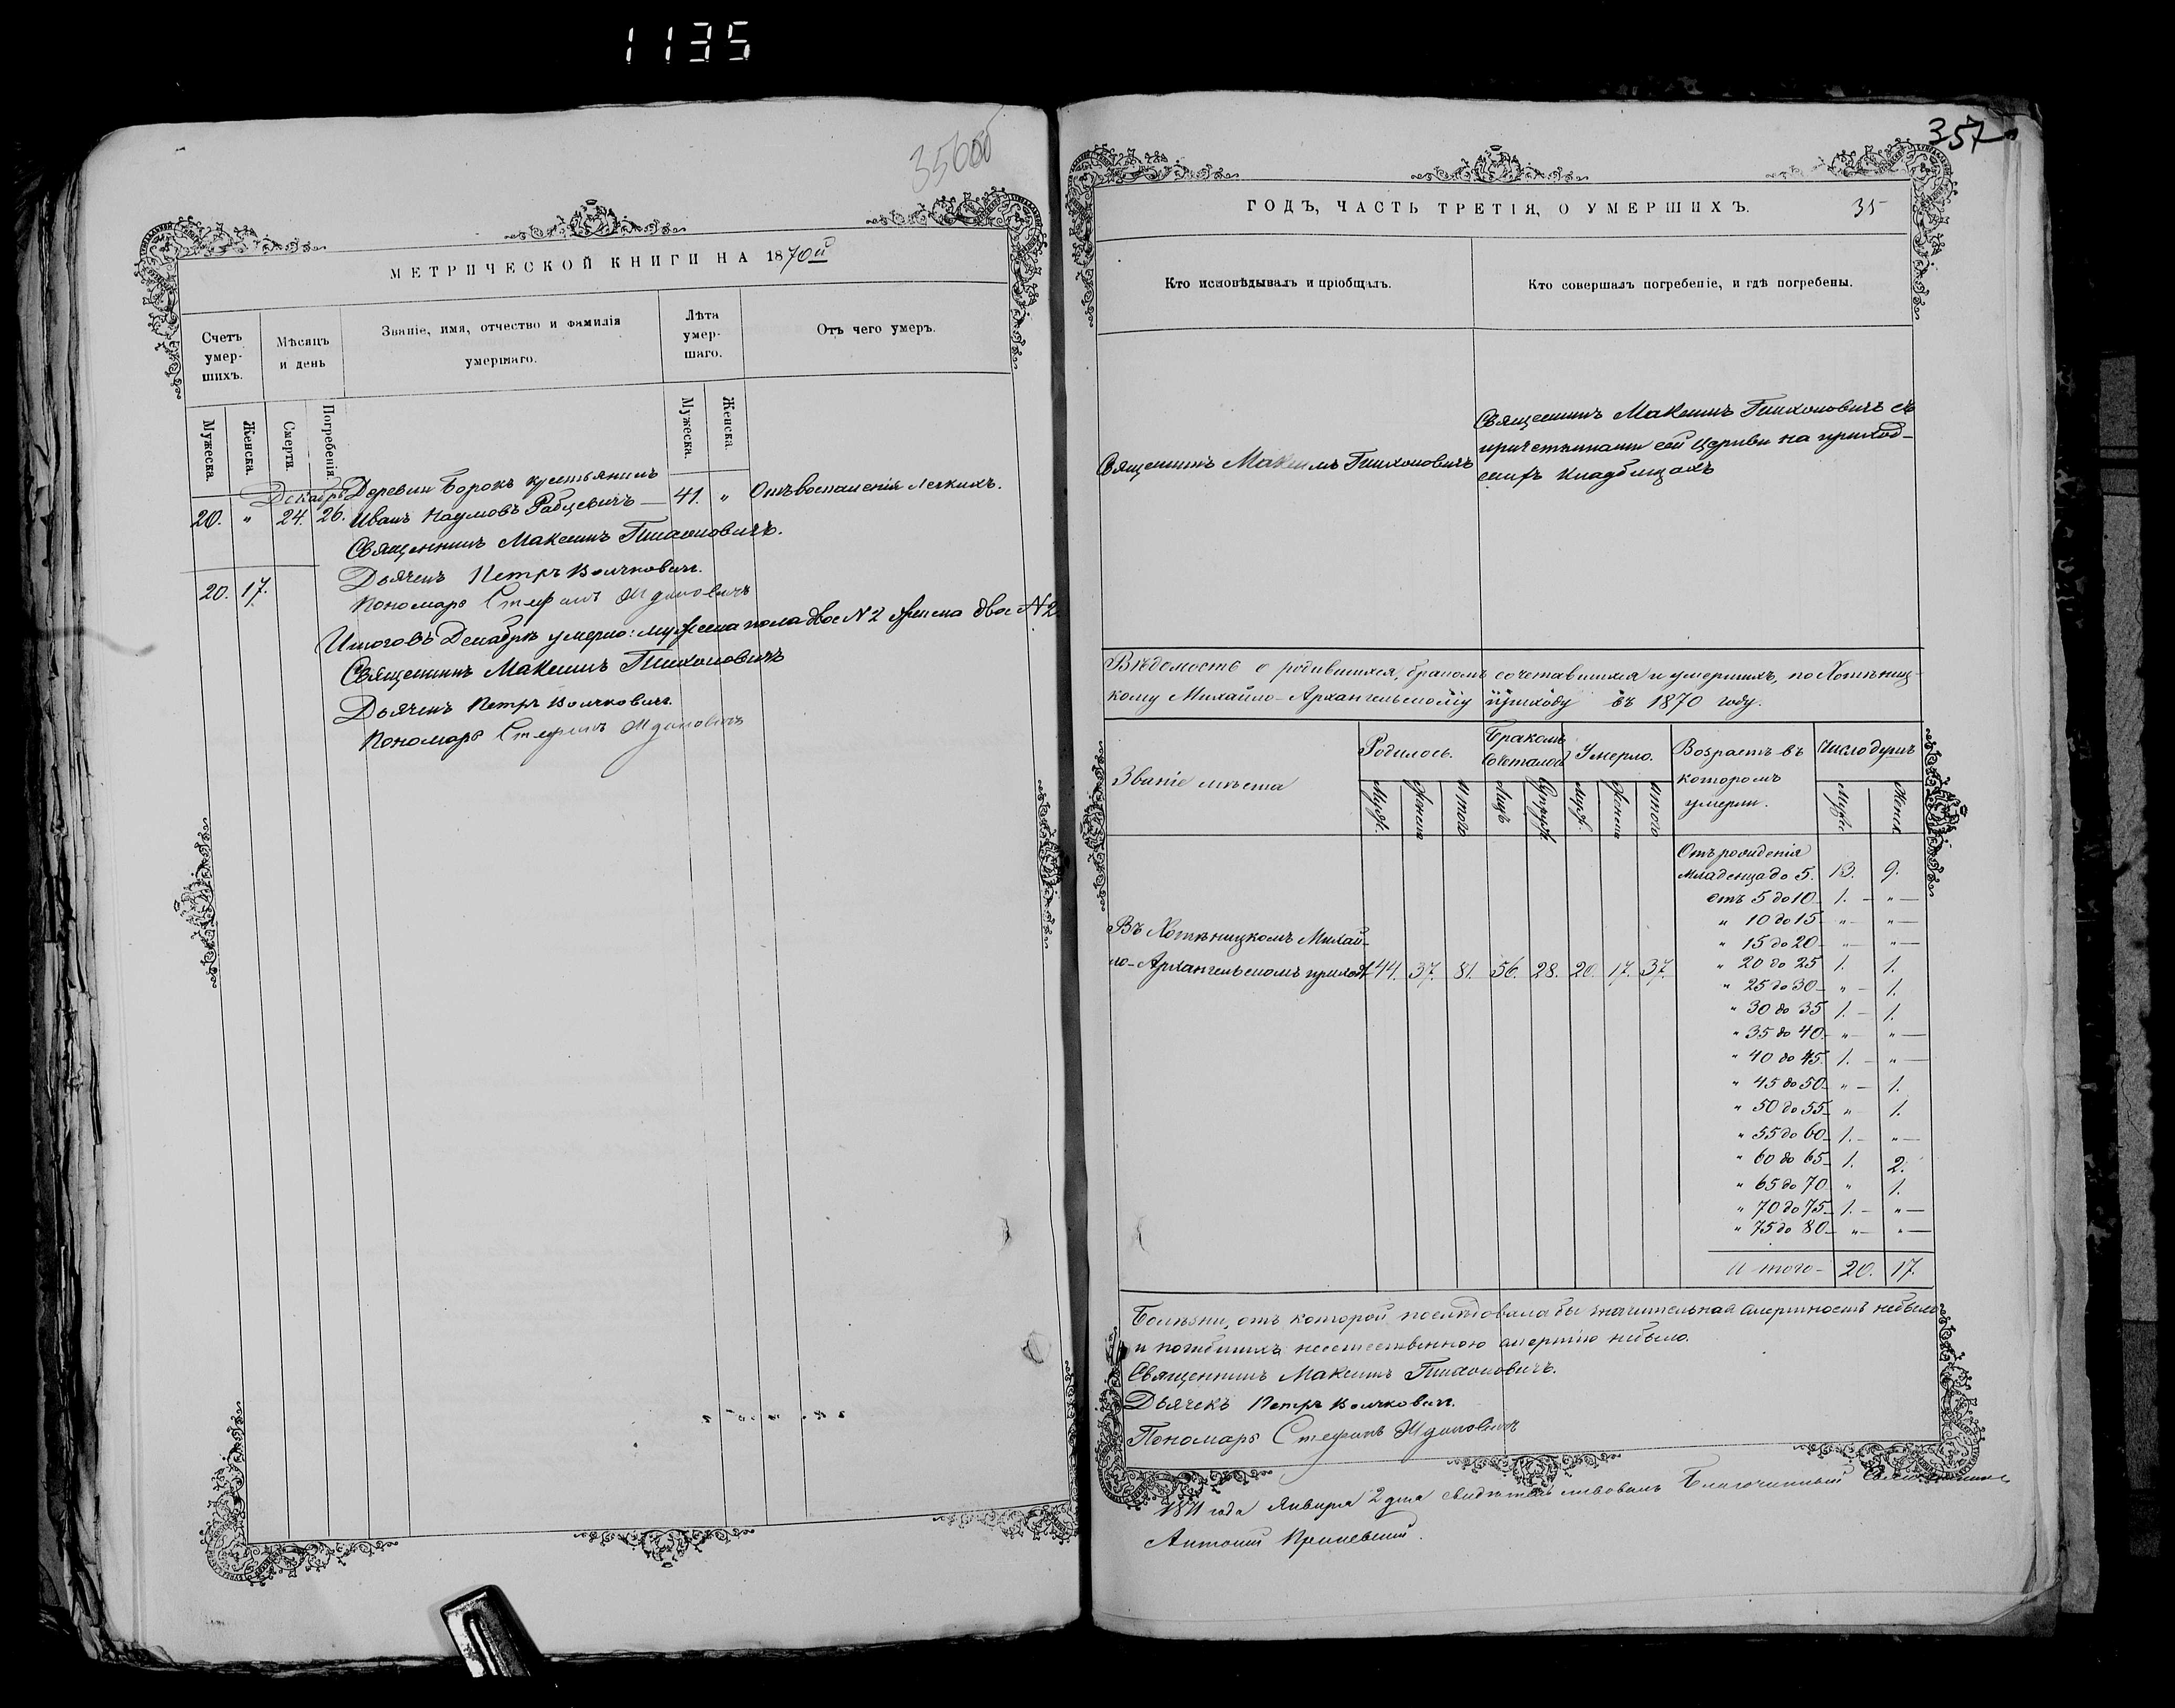 1135
357
МЕТРИЧЕСКОЙ КНИГИ НА 1870й
Счетъ умер-шихъ.
Мѣсяцъ и день
Званіе, имя, отчество и фамилія умершаго.
Лѣта умер-шаго.
Отъ чего умеръ.
Мужеска.
Женска.
Смерти.
Погребенія.
Мужеска.
Женска.
Декабрь Деревни Борокъ крестьянинъ
20. " 24. 26. Иванъ Наумовъ Рабцевичъ — 41. " Отъ воспаленія легкихъ.
Священникъ Максимъ Тихоновичъ.
Дьячекъ Петръ Волчковичъ.
20. 17.
Пономарь Стефанъ Ждановичъ
Итого въ Декабрѣ умерло: мужеска пола двое N 2 женска двое N 2
Священникъ Максимъ Тихоновичъ
Дьячекъ Петръ Волчковичъ.
Пономарь Стефанъ Ждановичъ
ГОДЪ, ЧАСТЬ ТРЕТІЯ, О УМЕРШИХЪ.
35
Кто исповѣдывалъ и пріобщалъ.
Кто совершалъ погребеніе, и гдѣ погребены.
Священникъ Максимъ Тихоновичъ
Священникъ Максимъ Тихоновичъ съ
причетниками сей Церкви на приход-
скихъ кладбищахъ
Вѣдомость о родившихся, бракомъ сочетавшихся и умершихъ, по Хотѣниц-
кому Михайло-Архангельскому приходу въ 1870 году.
Званіе мѣста
Родилось.
Бракомъ сочеталось
Умерло.
Возрастъ въ которомъ умерли.
Число душъ
Муж.
Женска
Итого
Лицъ
Супруж.
Муж.
Женска
Итого
Муж.
Женск.
Отъ рожденія
младенца до 5. 13. 9.
Отъ 5 до 10 1. — " —
" 10 до 15 " — " —
" 15 до 20 " — " —
" 20 до 25 1. 1.
" 25 до 30 " — 1.
" 30 до 35 1. — 1.
" 35 до 40 " — " —
" 40 до 45 1. — " —
" 45 до 50 " — 1.
" 50 до 55 " 1.
" 55 до 60 1. — " —
" 60 до 65 1. 2.
" 65 до 70 " 1.
" 70 до 75 1. — " —
" 75 до 80 " — " —
Итого — 20. 17.
Въ Хотѣницкомъ Михай-
ло-Архангельскомъ приходѣ 44. 37. 81. 56. 28. 20. 17. 37.
Болѣзни, отъ которой послѣдовала бы значительная смертность небыло
и погибшихъ неестественною смертію небыло.
Священникъ Максимъ Тихоновичъ.
Дьячекъ Петръ Волчковичъ.
Пономарь Стефанъ Ждановичъ
1871 года Января 2 дня свидѣтельствовалъ Благочинный Священникъ
Антоній